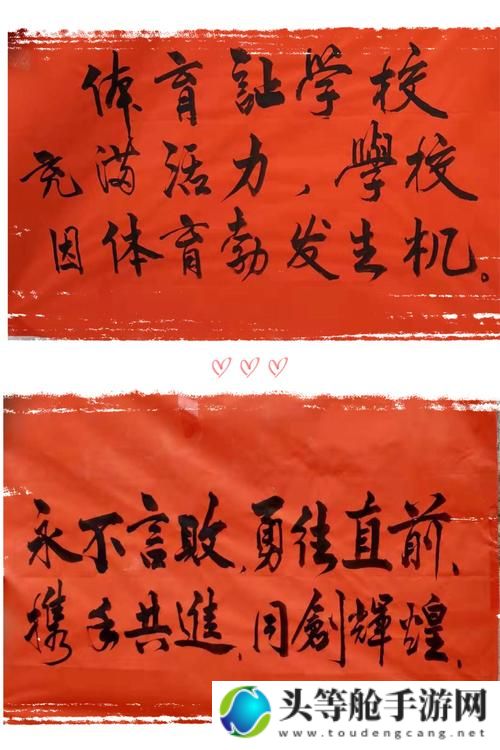 体育让学校
充满活力，學校
因体育勃发生机。
永不言敗，勇往直前，
携手共進，同創輝煌，
头等舱手游网
www.toudengcang.net